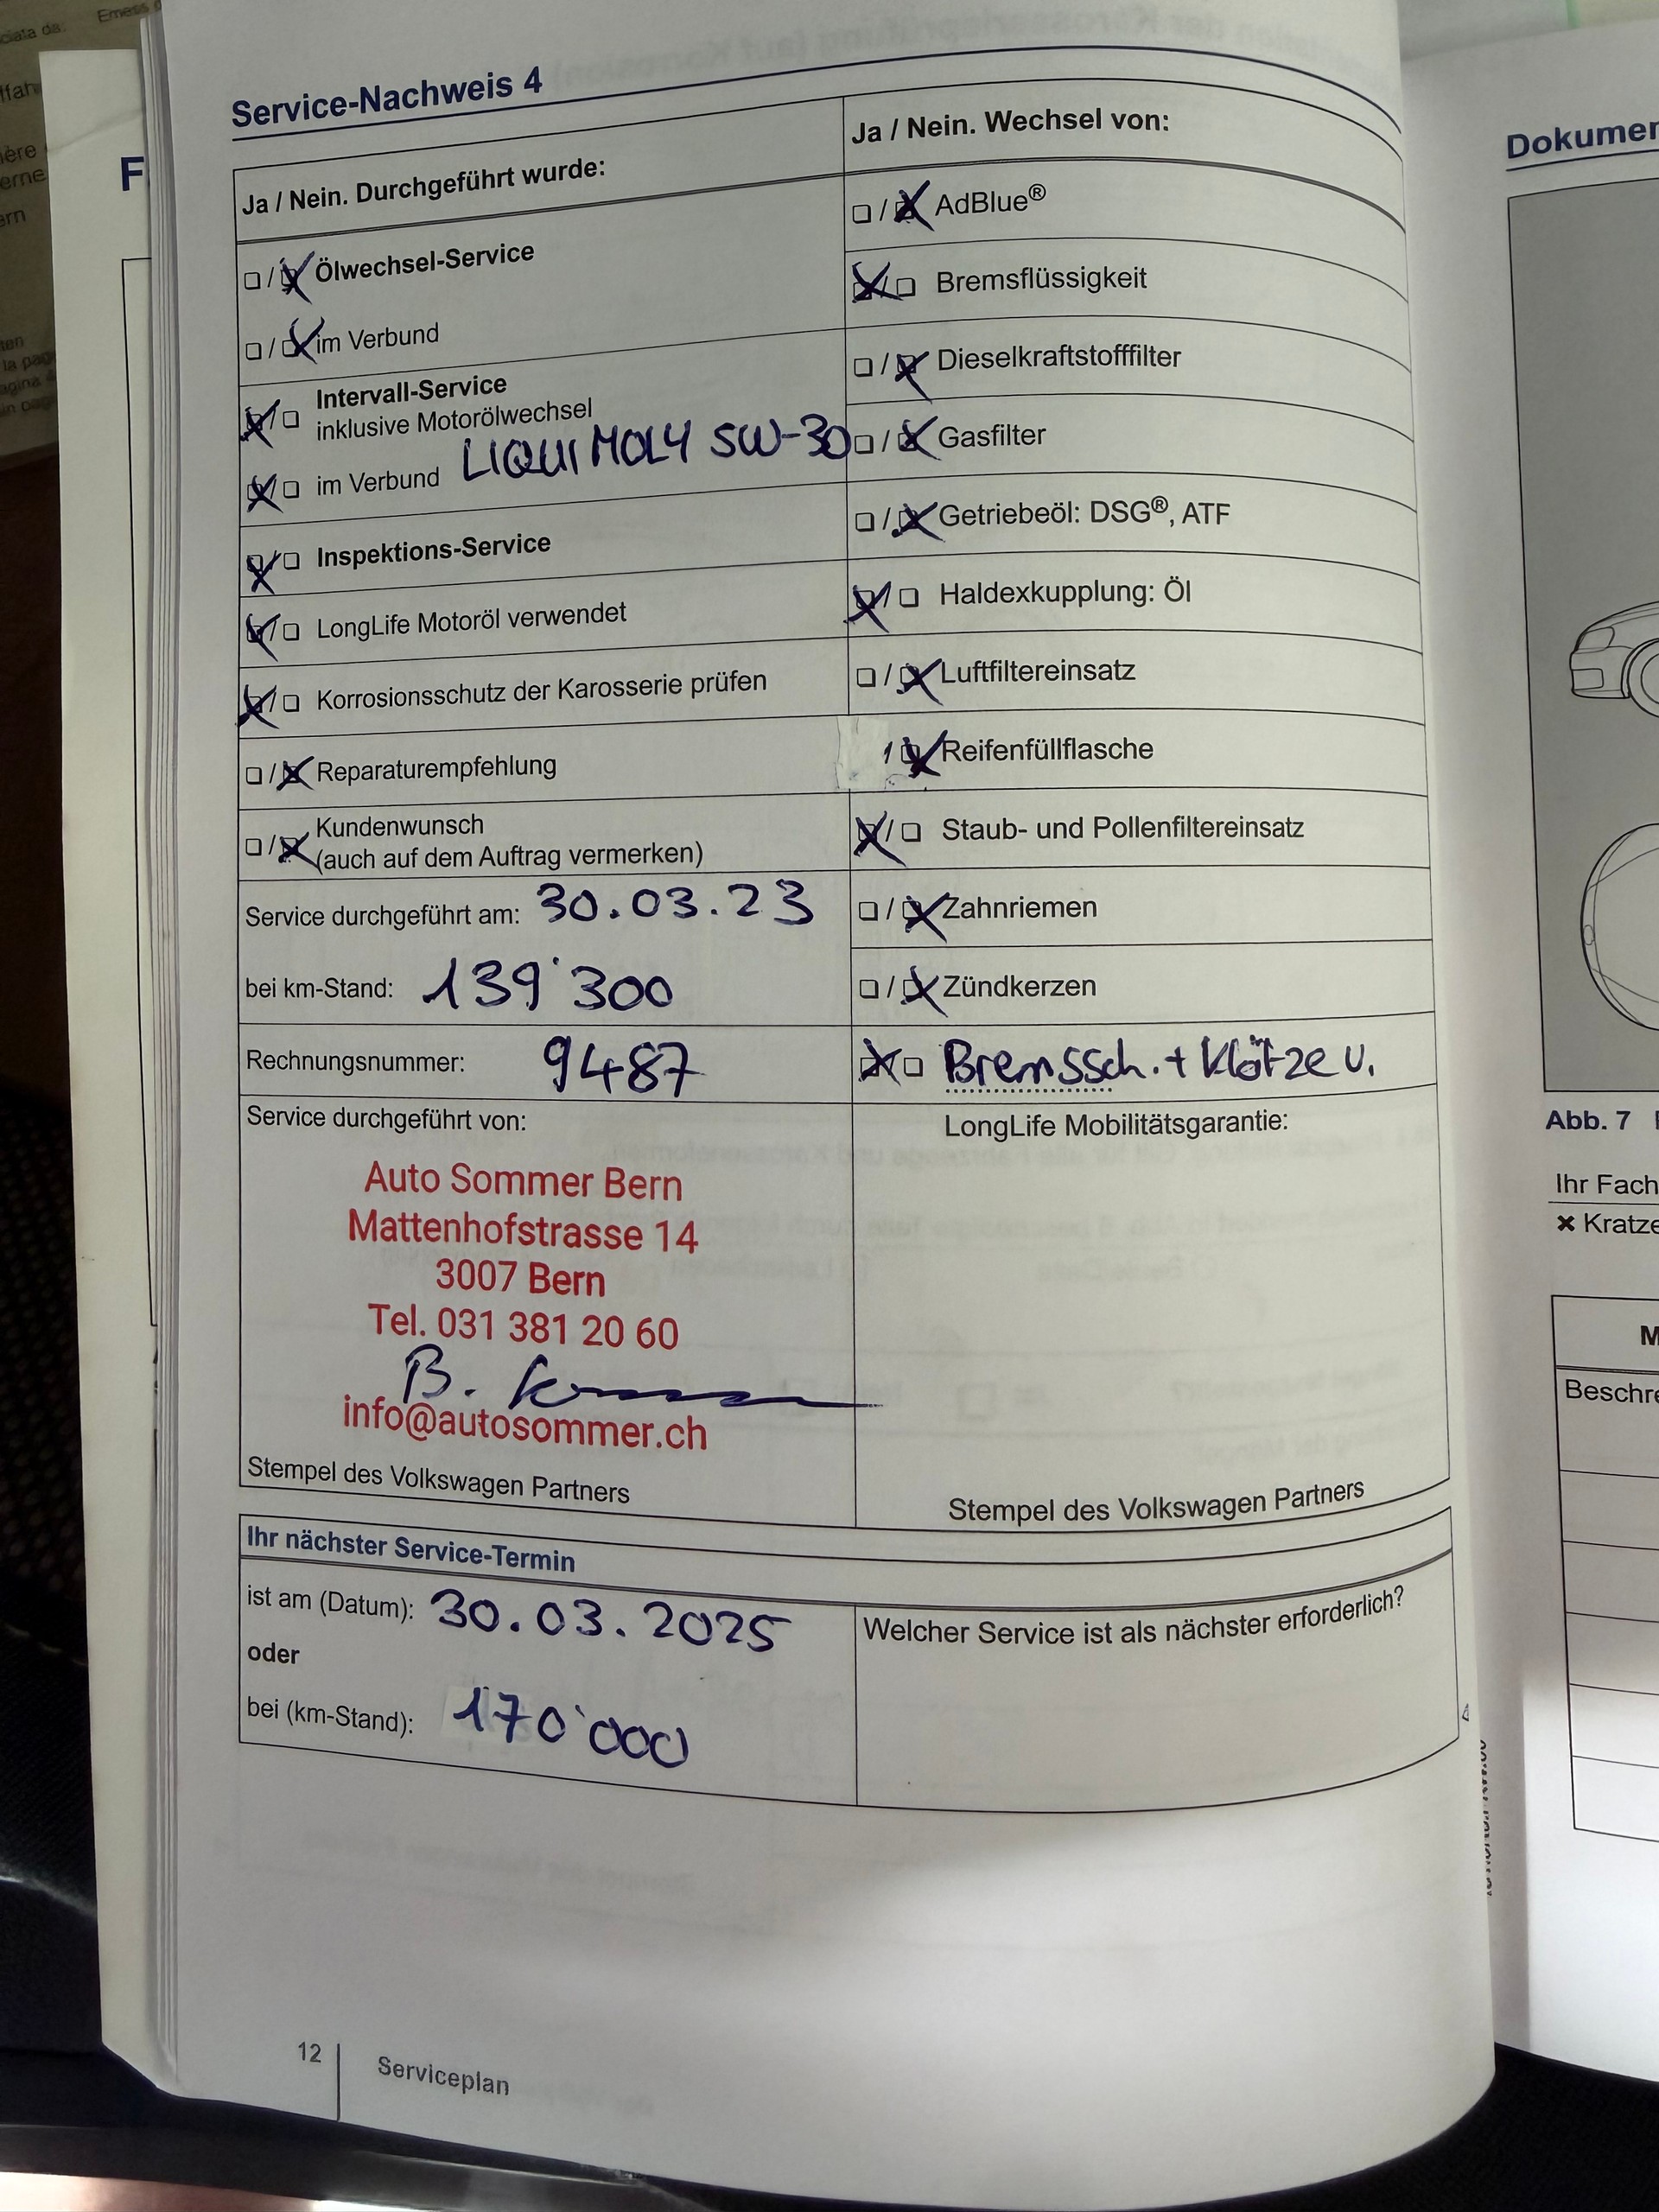 Service-Nachweis 4
Ja / Nein. Durchgeführt wurde:
☐ / ☒ Ölwechsel-Service
☐ / ☒ im Verbund
☒ / ☐ Intervall-Service
inklusive Motorölwechsel
☒ / ☐ im Verbund LIQUI MOLY 5W-30
☒ / ☐ Inspektions-Service
☒ / ☐ LongLife Motoröl verwendet
☒ / ☐ Korrosionsschutz der Karosserie prüfen
☐ / ☒ Reparaturempfehlung
☐ / ☒ Kundenwunsch
(auch auf dem Auftrag vermerken)
Service durchgeführt am: 30.03.23
bei km-Stand: 139'300
Rechnungsnummer: 9487
Service durchgeführt von:
Auto Sommer Bern
Mattenhofstrasse 14
3007 Bern
Tel. 031 381 20 60
B.
info@autosommer.ch
Stempel des Volkswagen Partners
Ja / Nein. Wechsel von:
☐ / ☒ AdBlue®
☒ / ☐ Bremsflüssigkeit
☐ / ☒ Dieselkraftstofffilter
☐ / ☒ Gasfilter
☐ / ☒ Getriebeöl: DSG®, ATF
☒ / ☐ Haldexkupplung: Öl
☐ / ☒ Luftfiltereinsatz
/ ☒ Reifenfüllflasche
☒ / ☐ Staub- und Pollenfiltereinsatz
☐ / ☒ Zahnriemen
☐ / ☒ Zündkerzen
☒ / ☐ Bremssch. + Klötze v.
LongLife Mobilitätsgarantie:
Stempel des Volkswagen Partners
Ihr nächster Service-Termin
ist am (Datum): 30.03.2025
oder
bei (km-Stand): 170'000
Welcher Service ist als nächster erforderlich?
12 Serviceplan
Dokumen
Abb. 7
Ihr Fach
✖ Kratze
M
Beschre
F